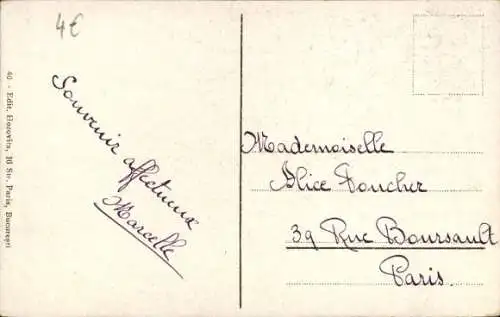 4€
Souvenir affectueux
Marcelle
Mademoiselle
Alice Foucher
39 Rue Boursault
Paris.
40 - Edit. Horovitz, 10 Str. Paris, București